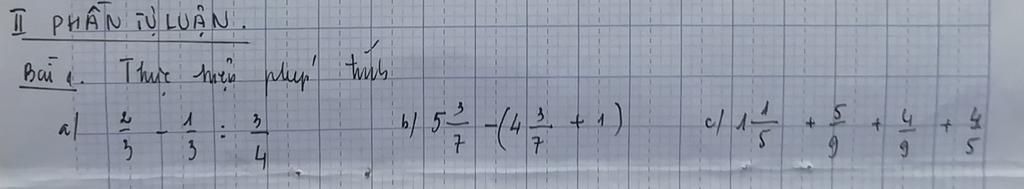 II PHẦN TỰ LUẬN.
Bài 1. Thực hiện phép tính
a/ 2/3 - 1/3 : 3/4 b/ 5 3/7 - (4 3/7 + 1) c/ 1 1/5 + 5/9 + 4/9 + 4/5